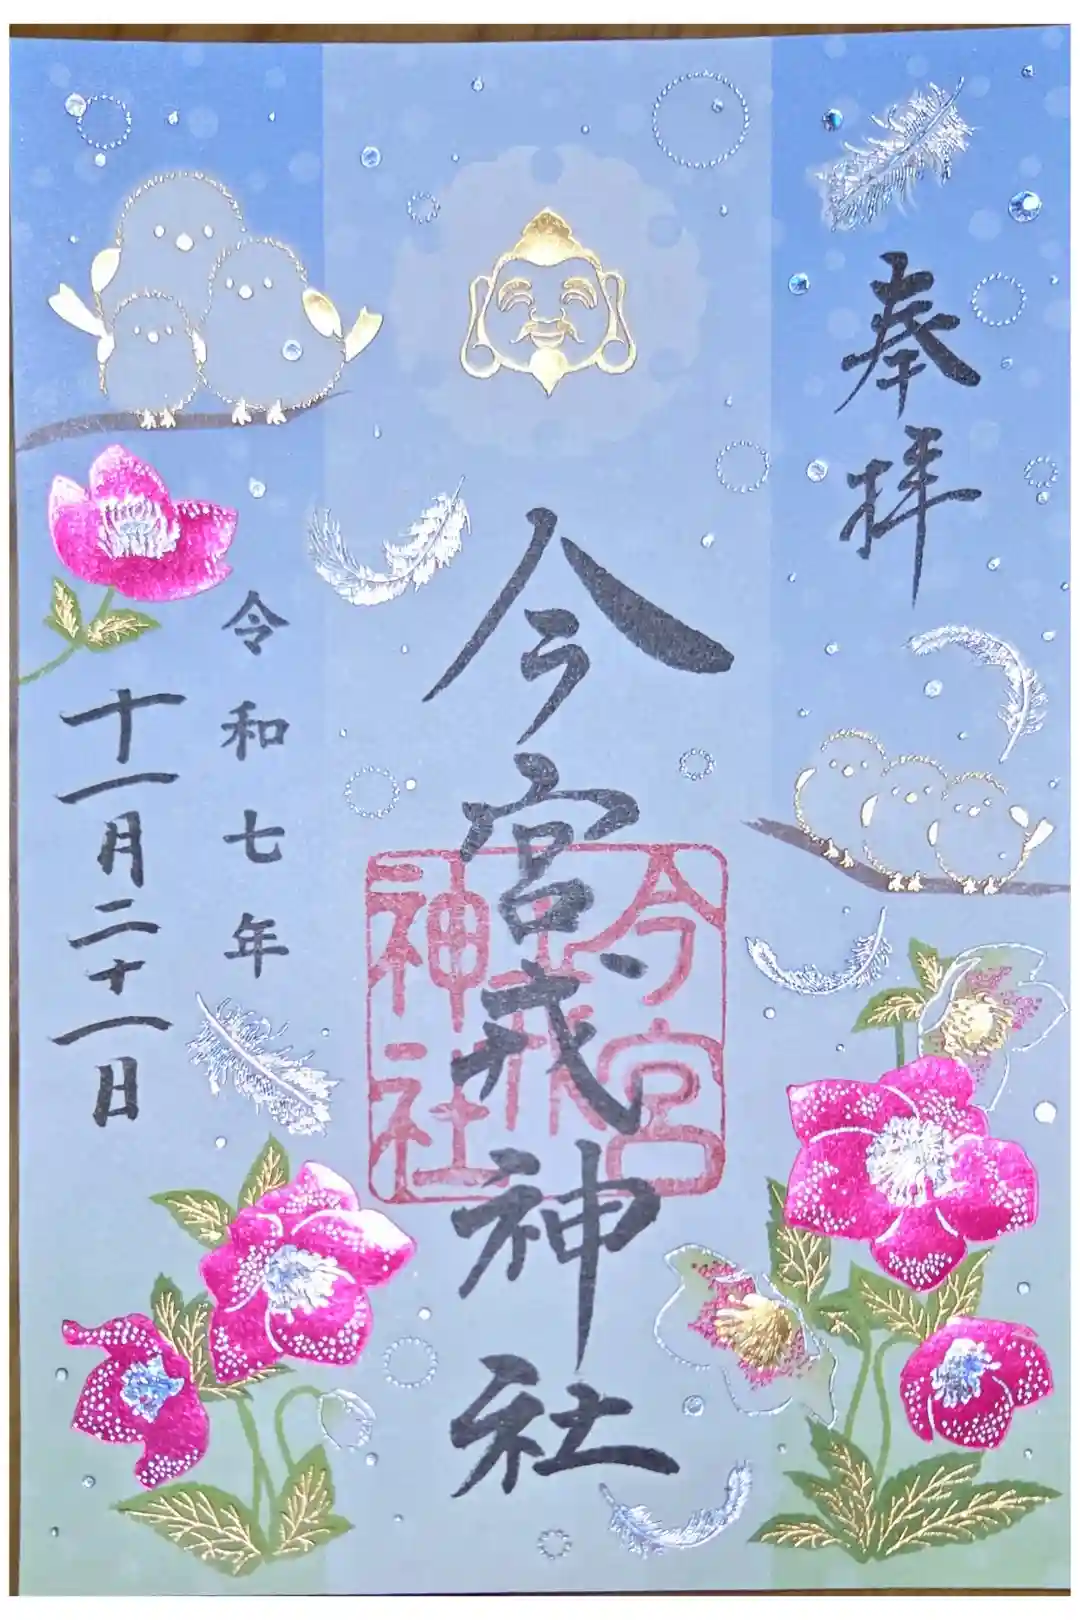 奉拝
今宮戎神社
令和七年
十一月二十一日
今宮
神社